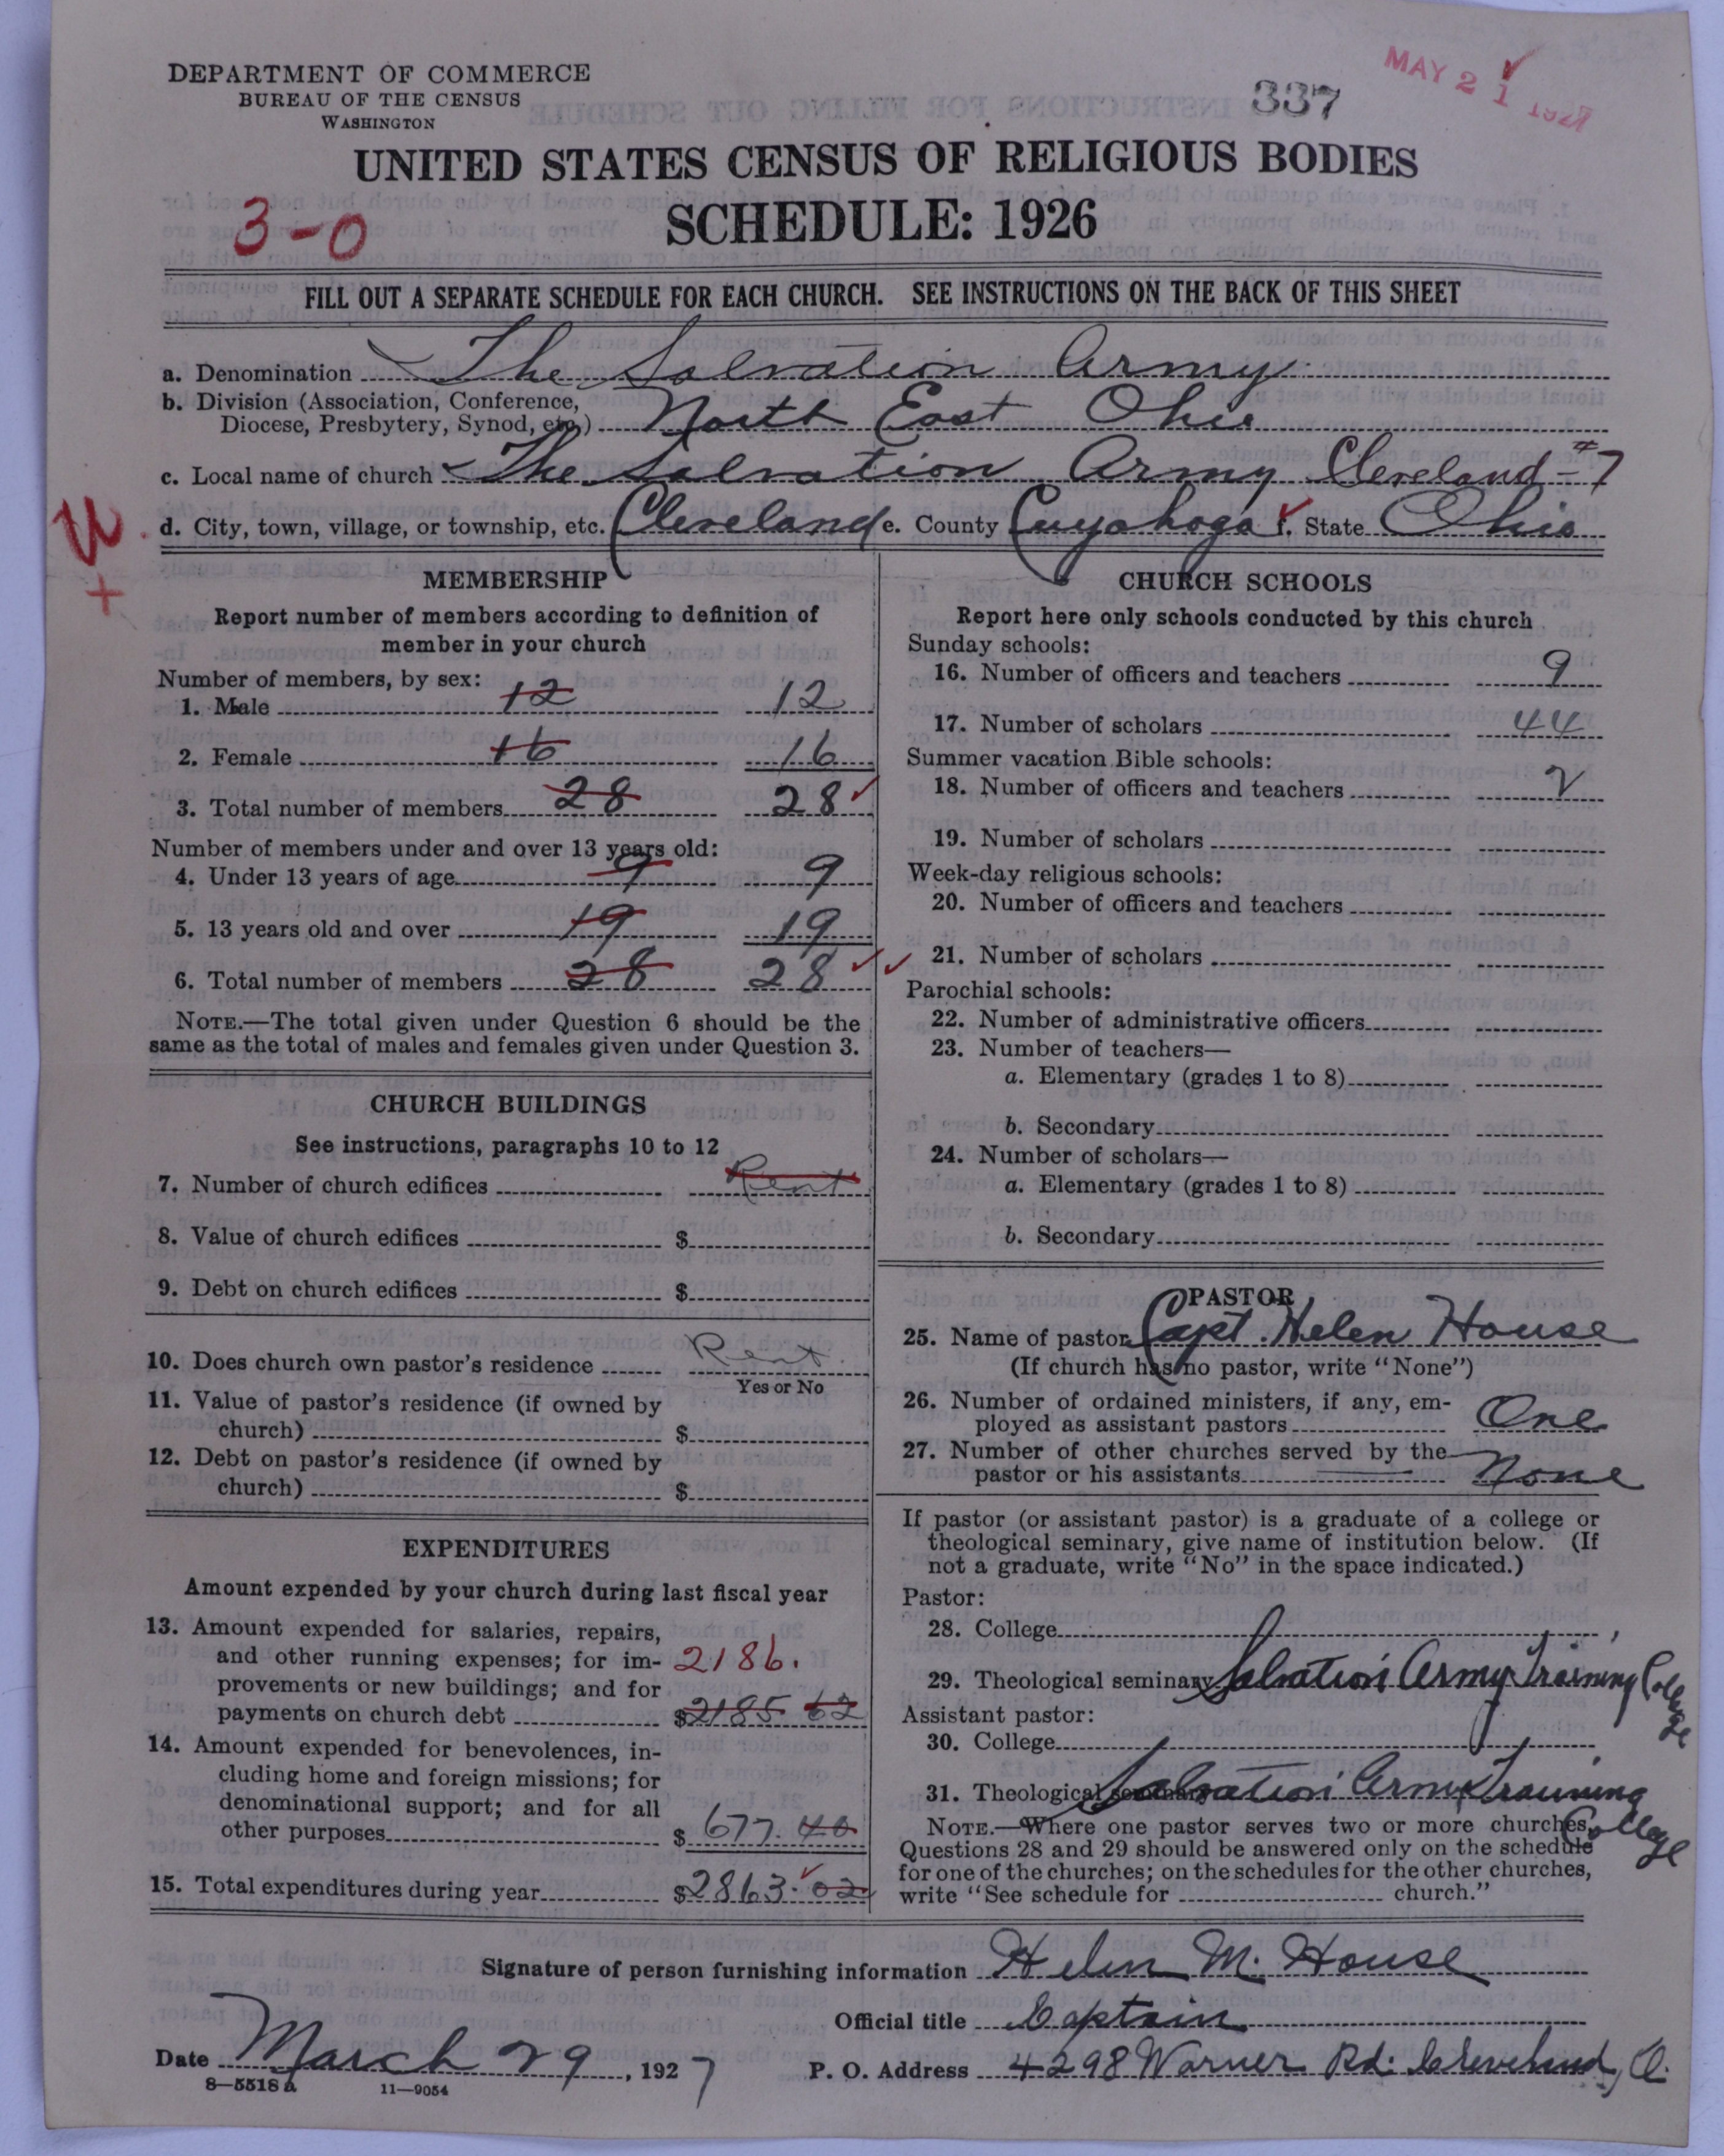 DEPARTMENT OF COMMERCE
BUREAU OF THE CENSUS
WASHINGTON
337
MAY 21 1927
UNITED STATES CENSUS OF RELIGIOUS BODIES
3-0
SCHEDULE: 1926
FILL OUT A SEPARATE SCHEDULE FOR EACH CHURCH. SEE INSTRUCTIONS ON THE BACK OF THIS SHEET
a. Denomination The Salvation Army
b. Division (Association, Conference,
Diocese, Presbytery, Synod, etc.) North East Ohio
c. Local name of church The Salvation Army Cleveland #7
d. City, town, village, or township, etc. Cleveland e. County Cuyahoga f. State Ohio
MEMBERSHIP
Report number of members according to definition of
member in your church
Number of members, by sex:
1. Male 12 12
2. Female 16 16
3. Total number of members 28 28
Number of members under and over 13 years old:
4. Under 13 years of age 9 9
5. 13 years old and over 19 19
6. Total number of members 28 28
NOTE.—The total given under Question 6 should be the
same as the total of males and females given under Question 3.
CHURCH BUILDINGS
See instructions, paragraphs 10 to 12
7. Number of church edifices Rent
8. Value of church edifices $
9. Debt on church edifices $
10. Does church own pastor's residence Rent
Yes or No
11. Value of pastor's residence (if owned by
church) $
12. Debt on pastor's residence (if owned by
church) $
EXPENDITURES
Amount expended by your church during last fiscal year
13. Amount expended for salaries, repairs,
and other running expenses; for im- 2186.
provements or new buildings; and for
payments on church debt $2185 62
14. Amount expended for benevolences, in-
cluding home and foreign missions; for
denominational support; and for all
other purposes $ 677.40
15. Total expenditures during year $2863.02
CHURCH SCHOOLS
Report here only schools conducted by this church
Sunday schools:
16. Number of officers and teachers 9
17. Number of scholars 44
Summer vacation Bible schools:
18. Number of officers and teachers 2
19. Number of scholars
Week-day religious schools:
20. Number of officers and teachers
21. Number of scholars
Parochial schools:
22. Number of administrative officers
23. Number of teachers—
a. Elementary (grades 1 to 8)
b. Secondary
24. Number of scholars—
a. Elementary (grades 1 to 8)
b. Secondary
PASTOR
25. Name of pastor Capt. Helen House
(If church has no pastor, write "None")
26. Number of ordained ministers, if any, em-
ployed as assistant pastors One
27. Number of other churches served by the
pastor or his assistants None
If pastor (or assistant pastor) is a graduate of a college or
theological seminary, give name of institution below. (If
not a graduate, write "No" in the space indicated.)
Pastor:
28. College
29. Theological seminary Salvation Army Training College
Assistant pastor:
30. College
31. Theological seminary Salvation Army Training College
NOTE.—Where one pastor serves two or more churches,
Questions 28 and 29 should be answered only on the schedule
for one of the churches; on the schedules for the other churches,
write "See schedule for church."
Signature of person furnishing information Helen M. House
Official title Captain
Date March 29, 1927 P. O. Address 4298 Warner Rd. Cleveland, O.
8—5518 a 11—9054